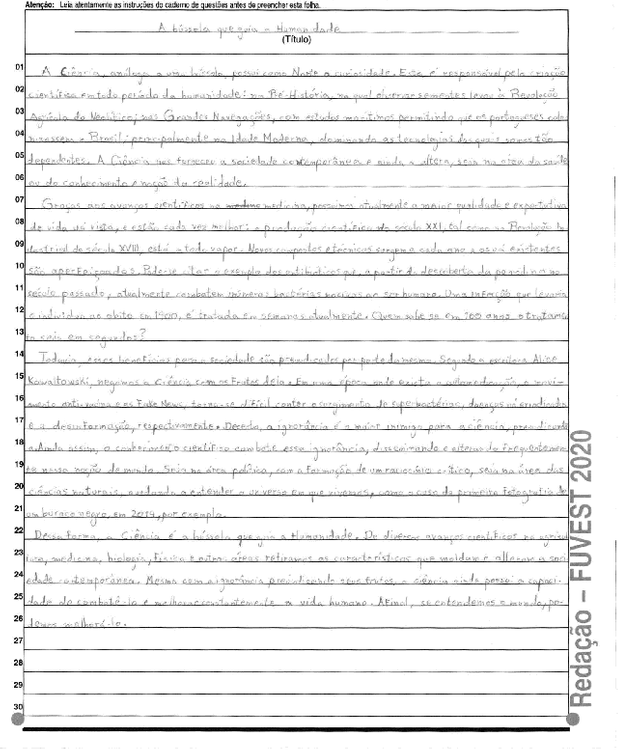 Atenção: Leia atentamente as instruções do caderno de questões antes de preencher esta folha.
A bússola que guia a Humanidade
(Título)
01 A Ciência, análoga a uma bússola, possui como Norte a curiosidade. Esta, é responsável pela criação
02 científica em todo período da humanidade: na Pré-História, na qual observar sementes levou à Revolução
03 Agrícola do Neolítico; nas Grandes Navegações, com estudos marítimos permitindo que os portugueses colo-
04 nizassem o Brasil; principalmente na Idade Moderna, dominando as tecnologias das quais somos tão
05 dependentes. A Ciência nos forneceu a sociedade contemporânea e ainda a altera, seja na área da saúde
06 ou do conhecimento e noção da realidade.
07 Graças aos avanços científicos na medicina, possuímos atualmente a maior qualidade e expectativa
08 de vida já vista, e estão cada vez melhor: a produção científica do século XXI, tal como na Revolução In-
09 dustrial do século XVIII, está a todo vapor. Novos compostos e técnicas surgem a cada ano e os já existentes
10 são aperfeiçoados. Pode-se citar o exemplo dos antibióticos que, a partir da descoberta da penicilina no
11 século passado, atualmente combatem inúmeras bactérias nocivas ao ser humano. Uma infecção que levaria
12 o indivíduo ao óbito em 1900, é tratada em semanas atualmente. Quem sabe se em 100 anos o tratamen-
13 to caia em segundos?
14 Todavia, esses benefícios para a sociedade são prejudicados por parte da mesma. Segundo a escritora Alice
15 Kowaltowski, negamos a Ciência com os frutos dela. Em uma época onde exista a automedicação, o movi-
16 mento antivacina e as Fake News, torna-se difícil conter o surgimento de superbactérias, doenças já erradicadas
17 e a desinformação, respectivamente. Decerto, a ignorância é o maior inimigo para a ciência, prejudicando-
18 a. Ainda assim, o conhecimento científico combate essa ignorância, disseminando e alterando frequentemen-
19 te nossa noção de mundo. Seja na área política, com a formação de um raciocínio crítico, seja na área das
20 ciências naturais, ajudando a entender o universo em que vivemos, como o caso da primeira fotografia de
21 um buraco negro, em 2019, por exemplo.
22 Dessa forma, a Ciência é a bússola que guia a Humanidade. De diversos avanços científicos na agricul-
23 tura, medicina, biologia, física e outras áreas retiramos as características que moldaram e alteram a soci-
24 edade contemporânea. Mesmo com a ignorância prejudicando seus frutos, a ciência ainda possui a capaci-
25 dade de combatê-la e melhorar constantemente a vida humana. Afinal, se entendemos o mundo, po-
26 demos melhorá-lo.
27
28
29
30
Redação – FUVEST 2020